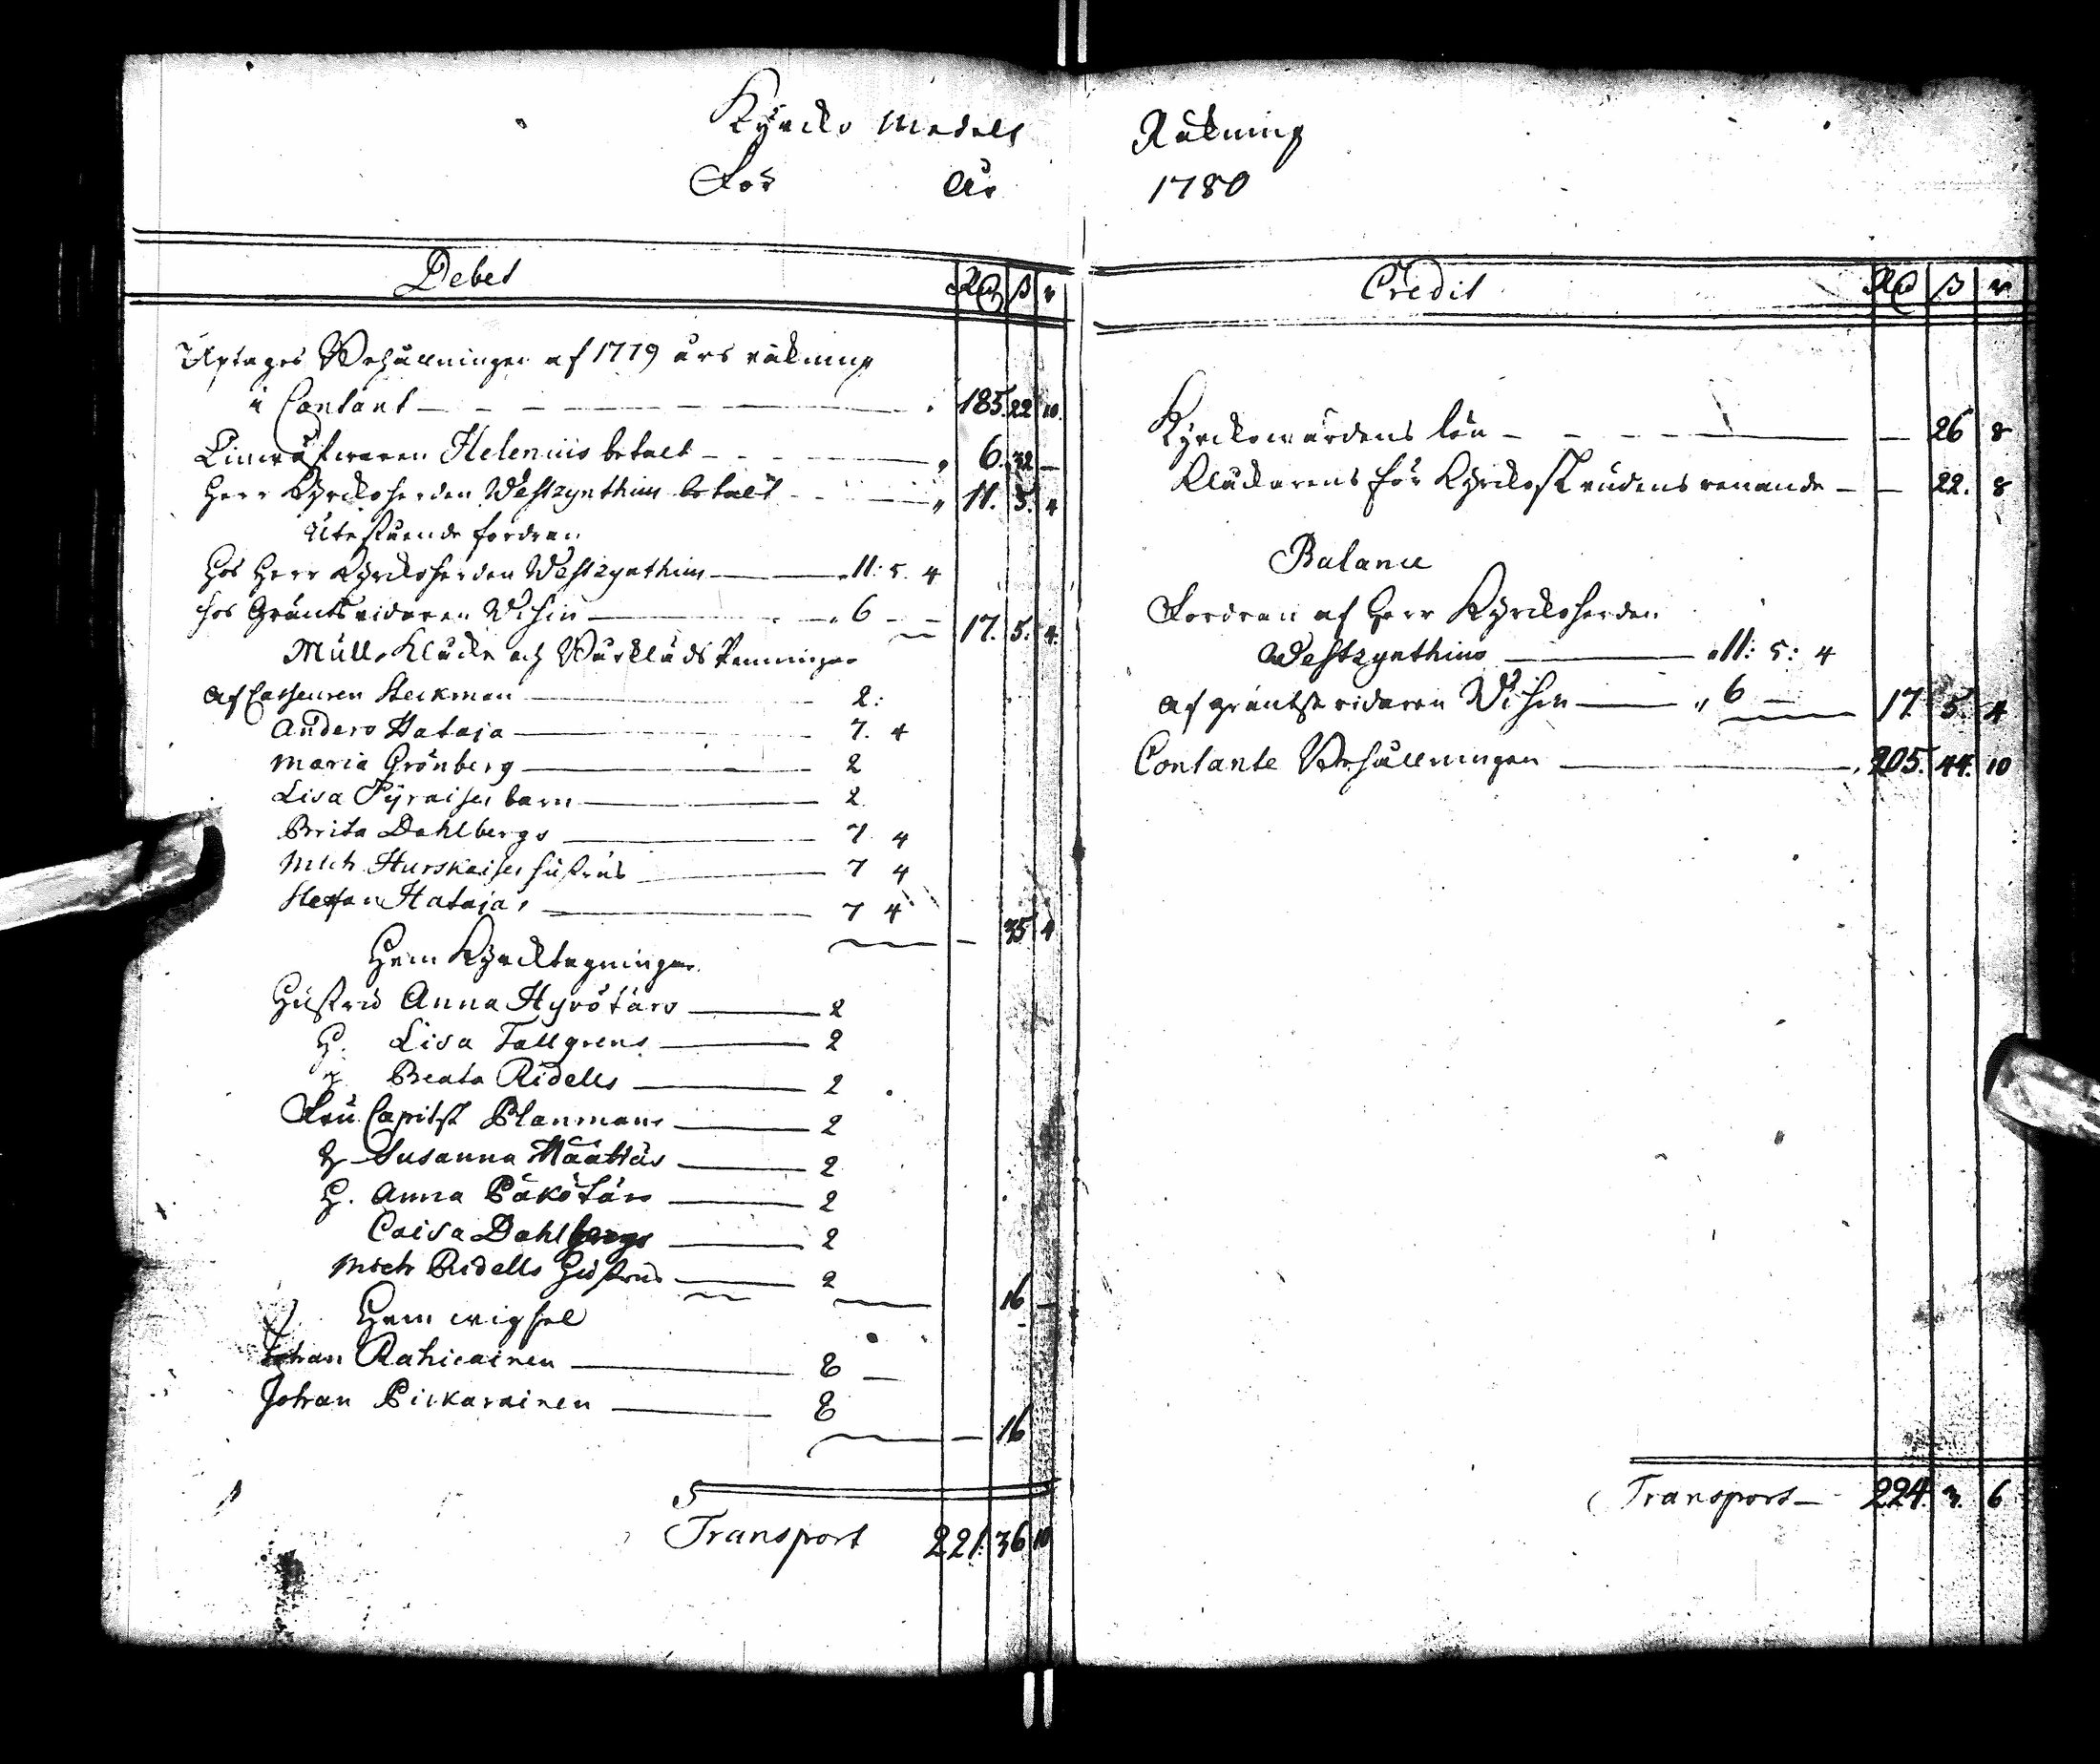 Kyrcko Medels
För År
Debet Rd ß r
Uptages Behållningen af 1779 års räkning
i Contant 185. 22 10.
Helenius betalt 6. 32 —
Herr Kyrckoherden Westzynthius betalt 11. 5. 4
Utestående fordran
Hos Herr Kyrckoherden Westzynthius 11: 5. 4
hos Gränts ridaren 6 — — 17. 5. 4.
Mull, Klåcke och Penningar
Af Casseuren Steckman 2:
Anders Hataja 7. 4
Maria Grönberg 2
Lisa barn 2
Brita Dahlbergs 7 4
Mich Hurskaises hustrus 7 4
Stefan Hatajas 7 4 — 35 4
Hem Kyrcktagningar
Hustrus Anna Hyvötärs 2
H. Lisa Tallgrens 2
H Beata Ridells 2
Fru Capitsk Planmans 2
H Susanna Määttäs 2
H. Anna Päkötärs 2
Caisa Dahlbergs 2
Mich Ridells Hustrus 2 16 —
Hem wigsel
Johan Rahicainen 8 —
Johan Pickarainen 8 — 16
Transport 221. 36 10
Räkning
1780
Credit Rd ß r
Kyrckowärdens lön — 26 8
Klåckarens för Kyrcko renande — 22. 8
Balance
Fordran af Herr Kyrckoherden
Westzynthius 11: 5: 4
af gräntse ridaren 6 — 17. 5. 4
Contante Behållningen 205. 44. 10
Transport — 224. 3. 6